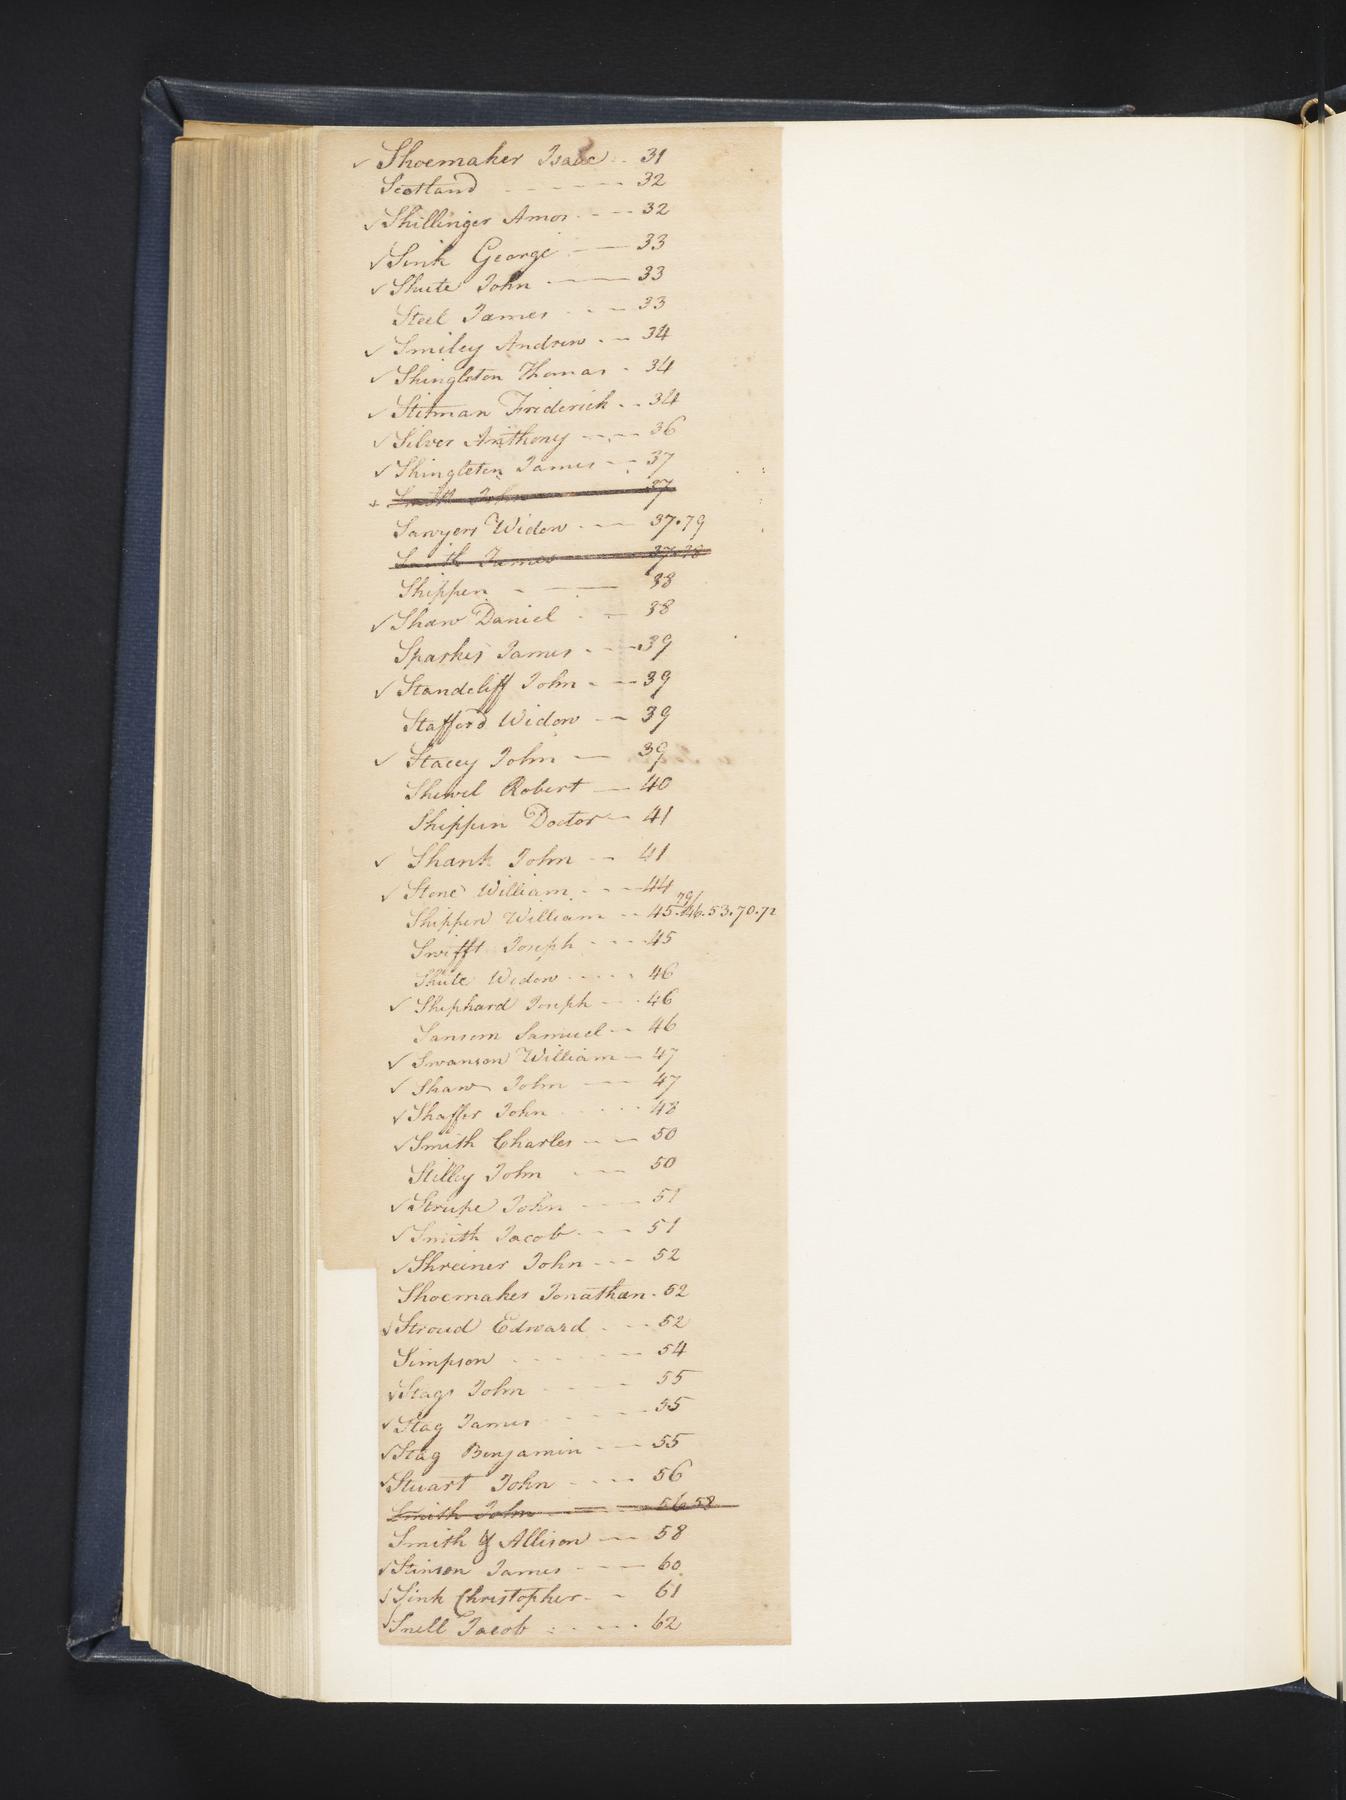 ✓ Shoemaker Isaac - - 31
Scotland - - - - - - 32
✓ Shillinger Amos - - - 32
✓ Sink George - — 33
✓ Shute John - —— 33
Steel James - - - 33
✓ Smiley Andrew - - 34
✓ Shingleton Thomas - 34
✓ Stitman Friderich - - 34
✓ Silver Anthony - - - 36
✓ Shingleton James - - 37
+ Smith John 37
Sawyers Widow - - - 37.79
Smith James 37.78
Shippen - — — 38
✓ Shaw Daniel - - 38
Sparkes James - - - 39
✓ Standcliff John - - - 39
Stafford Widow - - 39
✓ Stacey John — — 39
Shewel Robert — 40
Shippen Doctor - 41
✓ Shank John - - 41
✓ Stone William - - - 44
Shippen William - - 45.46.53.70.72 79/
Swifft Joseph - - - 45
Shute Widow - - - - 46
✓ Shiphard Joseph - - - 46
Sansom Samuel - - 46
✓ Swanson William - 47
✓ Shaw John - - - 47
✓ Shaffer John - - - - 48
✓ Smith Charles - - - 50
Stilley John - - - 50
✓ Strupe John - - - 51
✓ Smith Jacob - - - 51
✓ Shreiner John - - - 52
Shoemaker Jonathan - 52
✓ Stroud Edward - - - 52
Simpson - - - - - - 54
✓ Stags John - - - 55
✓ Stag James - - 55
✓ Stag Benjamin - - - 55
✓ Stuart John - - - - 56
Smith John 56.58
Smith & Allison - - - 58
✓ Stinson James - - - 60
✓ Sink Christopher - - 61
✓ Snell Jacob - - - - 62